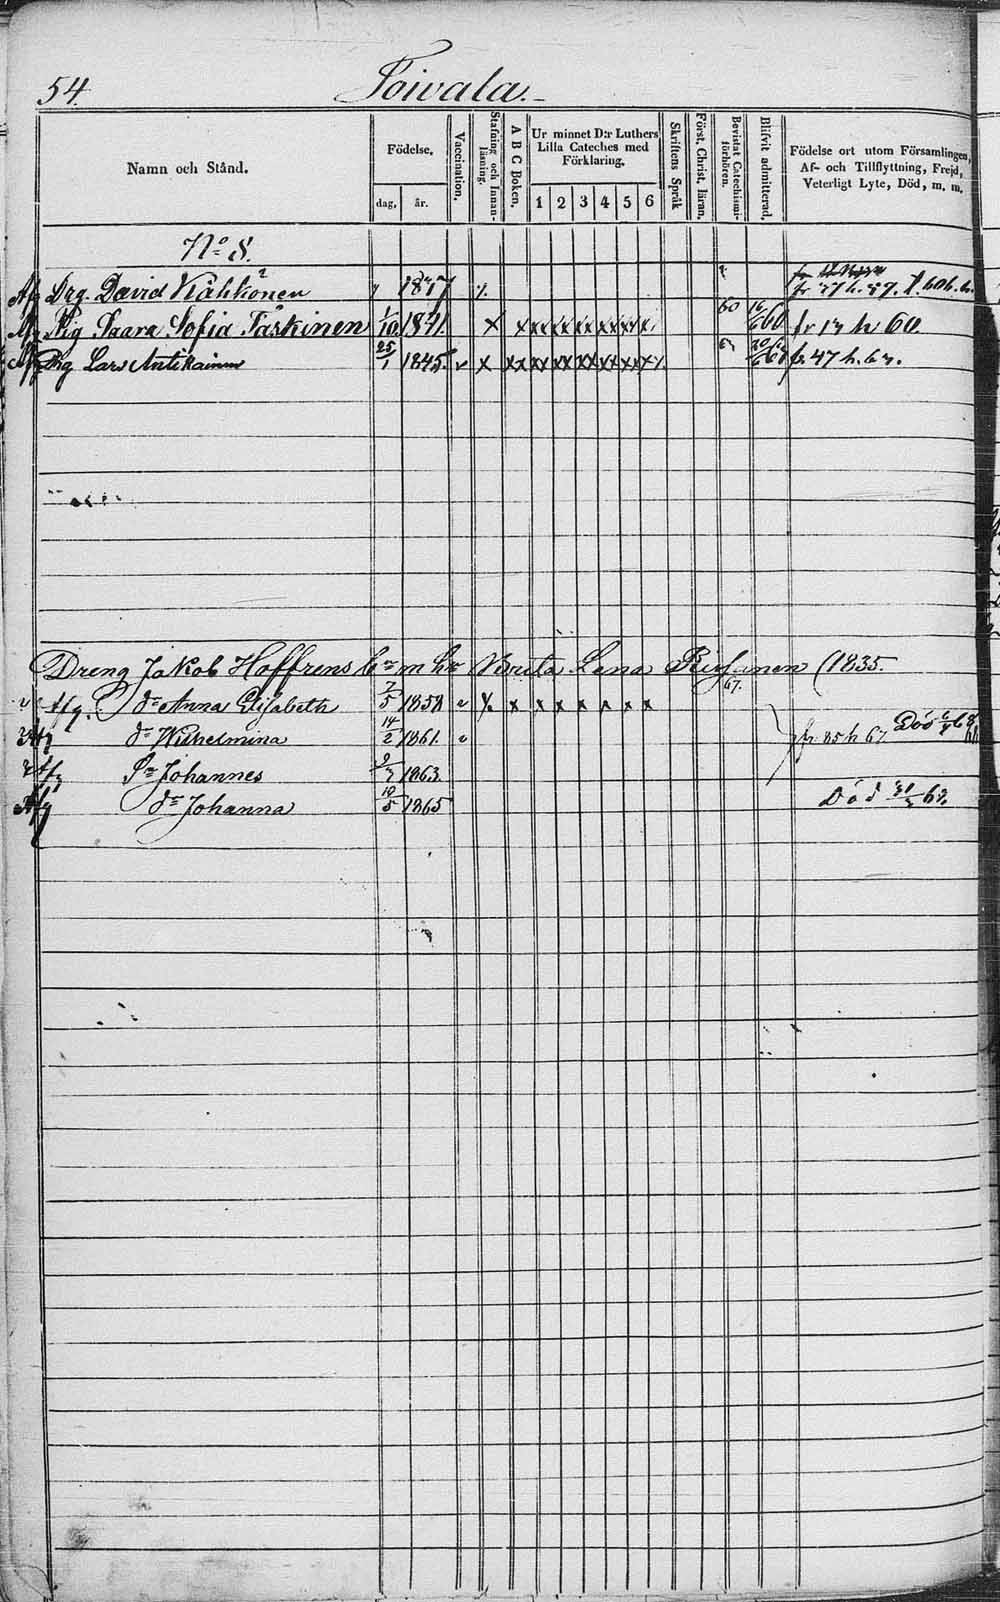 54.
Toivala.
Namn och Stånd.
Födelse.
dag. år.
Vaccination.
Stafning och Innan-läsning.
A B C Boken.
Ur minnet D:r Luthers Lilla Cateches med Förklaring.
1 2 3 4 5 6
Skriftens Språk
Först. Christ. läran.
Bevistat Catechismi-förhören.
Blifvit admitterad.
Födelse ort utom Församlingen, Af- och Tillflyttning, Frejd, Veterligt Lyte, Död, m. m.
No 8.
Afg Drg. David 18
Afg Pig Saara Sofia Tarkinen 1/10 1841. x x xx xx xx xx xx 60 fr 17 h 60
Afg Drg Lars Antikainen 25/1 1845. v x xx xx xx xx xx xx fr 47 h. 67.
Dreng Jakob Hoffrens m h Brita Lena 1835.
67.
Afg. dr Anna Elisabeth 7/5 1858 v x x x x x x x
Afg dr Wilhelmina 14/2 1861. v fr. 85 h 67. Död
Afg Sn Johannes 1863.
Afg dr Johanna 10/5 1865 Död